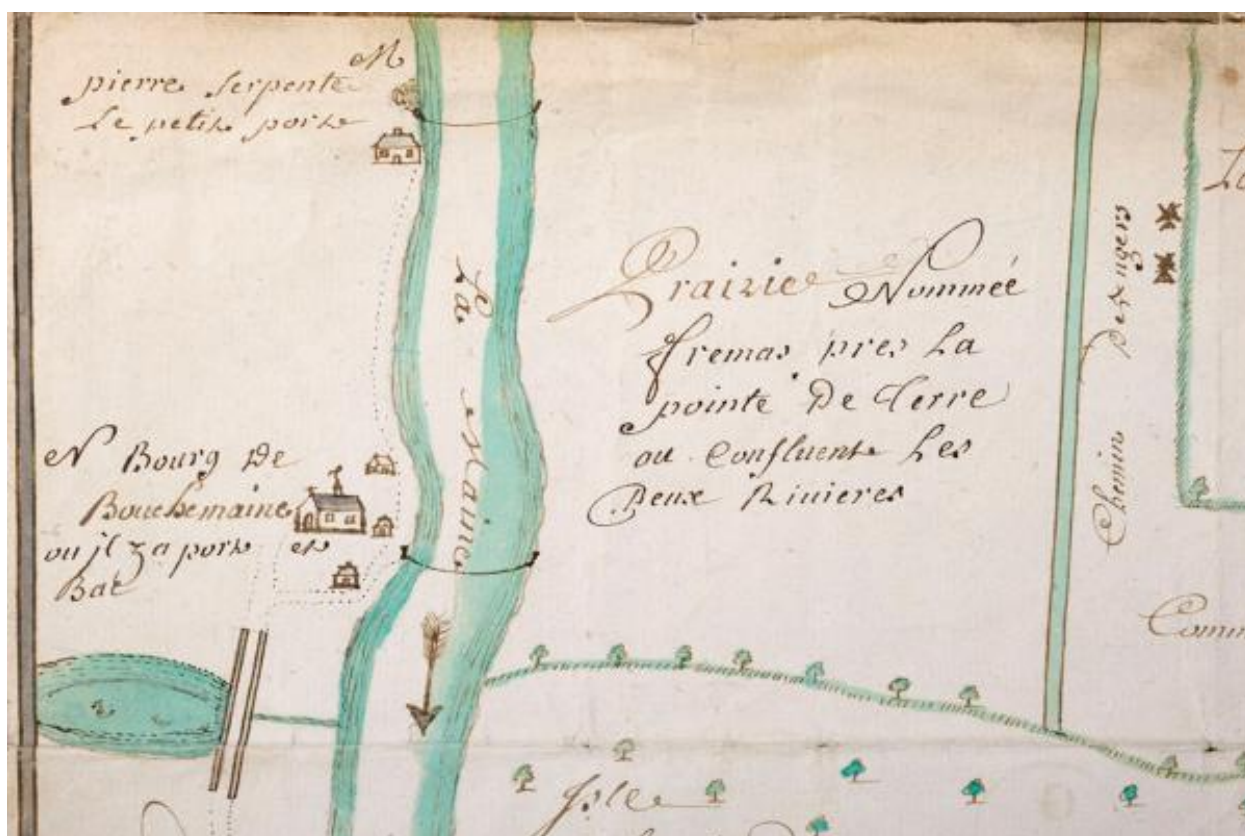 M
pierre serpente
Le petit port
La Maine
Prairie Nommée
fremas pres La
pointe De Terre
ou Confluent Les
Deux Rivieres
N Bourg De
Bouchemaine
ou jl y a port et
Bac
Chemin D'angers
Isle